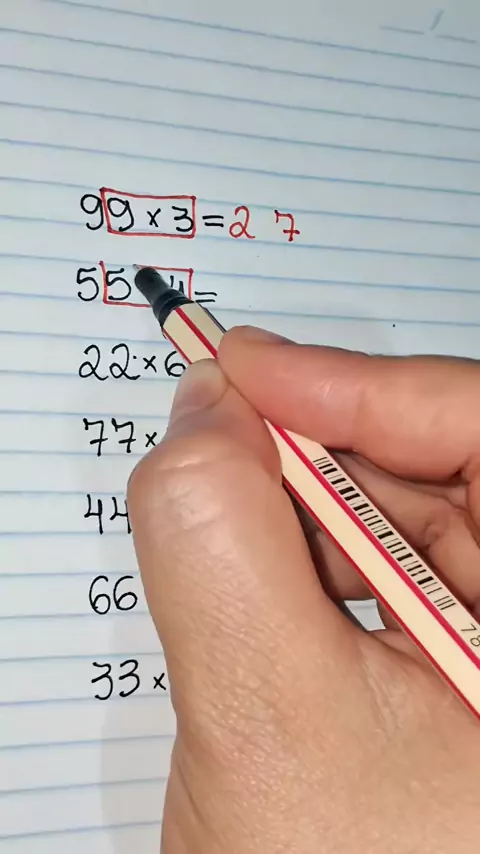 99 × 3 = 2 7
55 4 =
22 × 6
77 ×
44
66
33 ×
78